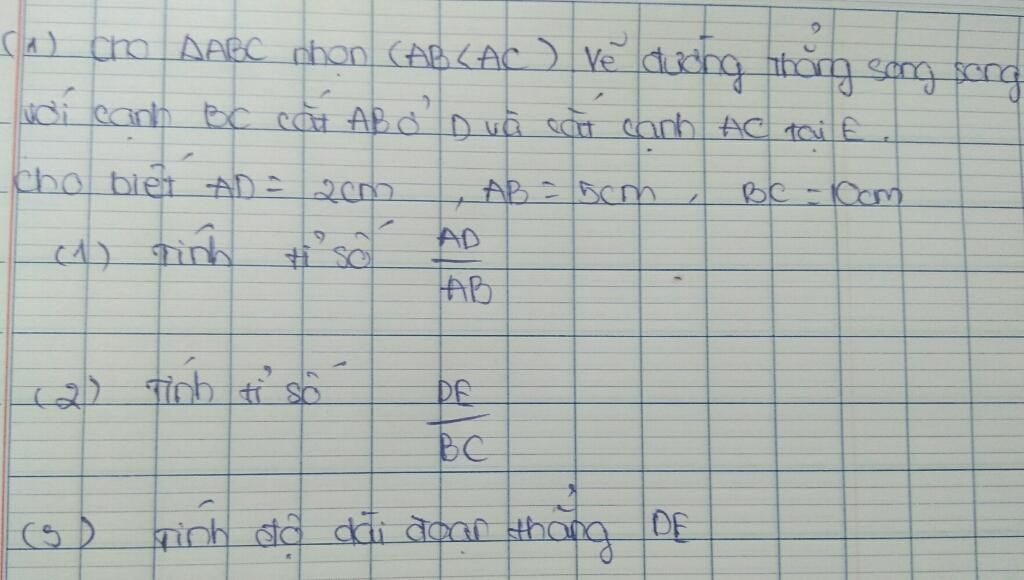 (1) Cho ΔABC nhọn (AB<AC) Vẽ đường thẳng song song
với cạnh BC cắt AB ở D và cắt cạnh AC tại E.
Cho biết AD = 2cm, AB = 5cm, BC = 10cm
(1) Tính tỉ số AD/AB
(2) Tính tỉ số DE/BC
(3) Tính độ dài đoạn thẳng DE